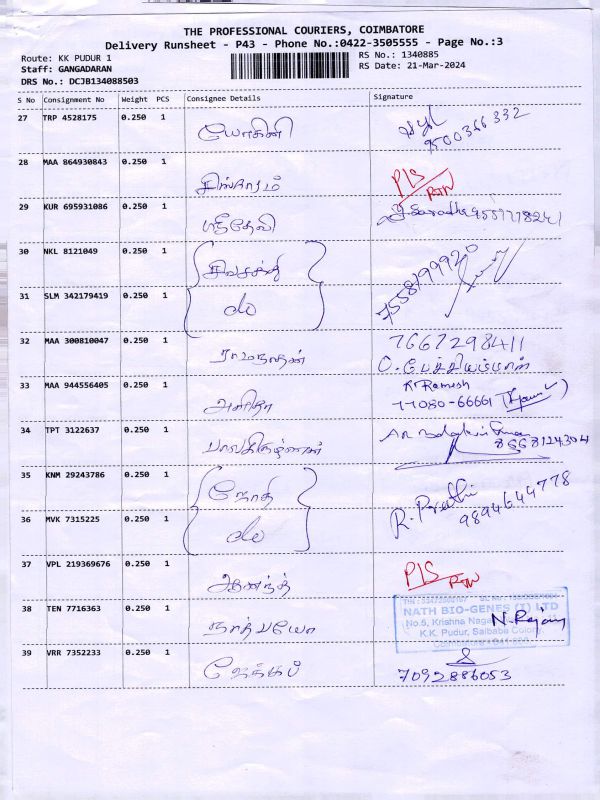 THE PROFESSIONAL COURIERS, COIMBATORE
Delivery Runsheet - P43 - Phone No.:0422-3505555 - Page No.:3
Route: KK PUDUR 1
RS No.: 1340885
Staff: GANGADARAN
RS Date: 21-Mar-2024
DRS No.: DCJB134088503
S No Consignment No Weight PCS Consignee Details Signature
27 TRP 4528175 0.250 1 யோகினி
9500366332
28 MAA 864930843 0.250 1 சிங்காரம் P/S
RTN
29 KUR 695931086 0.250 1 ஸ்ரீதேவி
30 NKL 8121049 0.250 1 சிவசக்தி 7558199920
31 SLM 342179419 0.250 1 do
32 MAA 300810047 0.250 1 ராமநாதன் 7667298411
33 MAA 944556405 0.250 1 அனிதா K Ramesh
77080-66661
34 TPT 3122637 0.250 1 பாலகிருஷ்ணன்
8668124304
35 KNM 29243786 0.250 1 ஜோதி R. Preethi
9894644778
36 MVK 7315225 0.250 1 do
37 VPL 219369676 0.250 1 ஆனந்த் P/S
RTN
38 TEN 7716363 0.250 1 நாத்பயோ N. Rajan
NATH BIO-GENES (I) LTD
No.5, Krishna Nagar
K.K. Pudur, Saibaba Colony,
39 VRR 7352233 0.250 1 ஜேக்கப்
7092886053